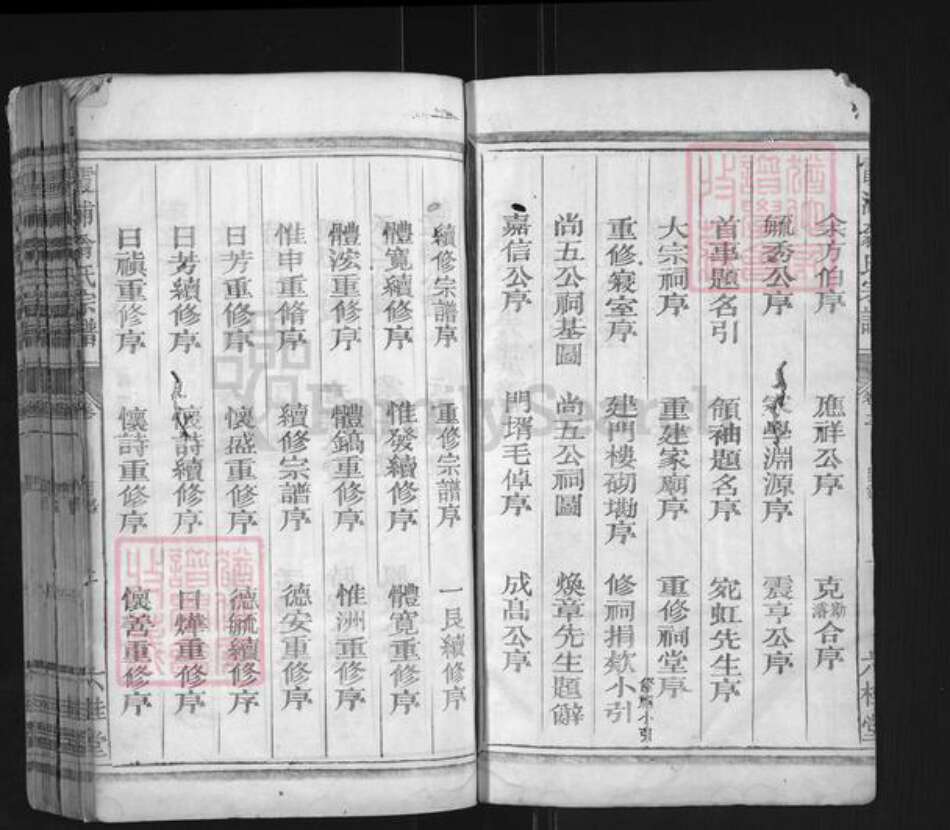 余方伯序 應祥公序 克勤潘合序
毓秀公序 家學淵源序 震亨公序
首事題名引 領袖題名序 宛虹先生序
大宗祠序 重建家廟序 重修祠堂序
重修寢室序 建門樓砌墈序 修祠捐欵小引
尚五公祠基圖 尚五公祠圖 煥章先生題辭
嘉信公序 門壻毛倬序 成高公序
續修宗譜序 重修宗譜序 一良續修序
體寬續修序 惟發續修序 體寬重修序
體浤重修序 體鎬重修序 惟洲重修序
惟申重脩序 續修宗譜序 德安重修序
日芳重修序 懷盛重修序 德毓續修序
日芳續修序 懷詩續修序 日燁重修序
日禎重修序 懷詩重修序 懷善重修序
霞浦翁氏宗譜 六桂堂
FamilySearch